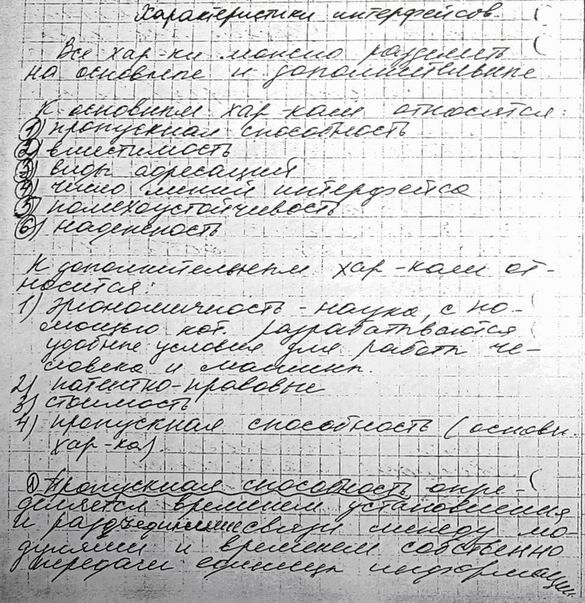 Характеристики интерфейсов.
Все хар-ки можно разделить
на основные и дополнительные
К основным хар-кам относятся:
1) пропускная способность
2) вместимость
3) виды адресаций
4) число линий интерфейса
5) помехоустойчивость
6) надежность
К дополнительным хар-кам от-
носится:
1) эргономичность - наука, с по-
мощью кот. разрабатываются
удобные условия для работы че-
ловека и машины.
2) патентно-правовые
3) стоимость
4) пропускная способность (основн.
хар-ка).
1) Пропускная способность опре-
деляется временем установления
и разъединение связи между мо-
дулями и временем собственно
передачи единицы информации